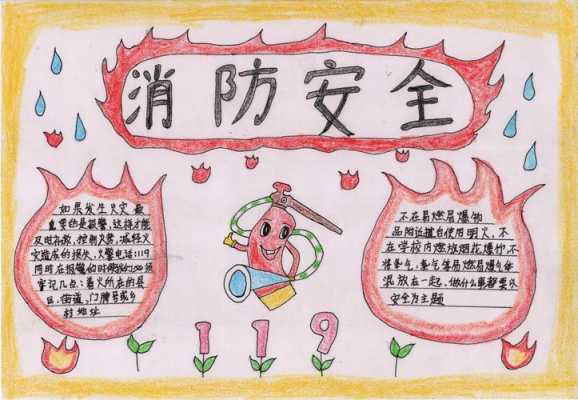 消防安全
如果发生火灾,最
重要的是报警,这样才能
及时扑救,控制火势,减轻火
灾造成的损失,火警电话:119
同时在报警的时候
牢记几点:着火所在的县
区、街道、门牌号或乡
村地址
不在易燃易爆物
品附近擅自使用明火,不
在学校内燃放烟花爆竹,不
将氧气、氢气等易燃易爆气体
混放在一起,做什么事都要以
安全为主题
119